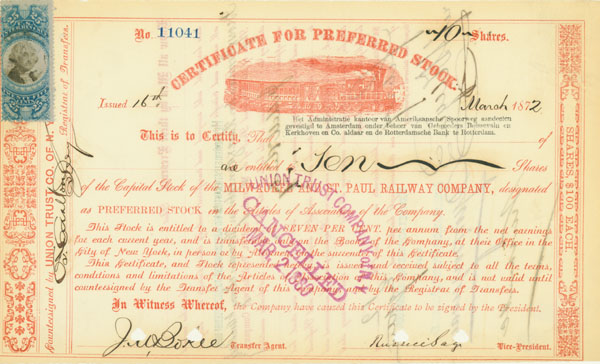 No. 11041
10 Shares.
CERTIFICATE FOR PREFERRED STOCK.
Issued 16th March 1872
Het Administratie kantoor van Amerikaansche Spoorweg aandeelen
gevestigd te Amsterdam onder beheer van Gebroeders Boissevain en
Kerkhoven en Co. aldaar en de Rotterdamsche Bank te Rotterdam.
This is to Certify, That
are entitled to Ten Shares
of the Capital Stock of the MILWAUKEE AND ST. PAUL RAILWAY COMPANY, designated
as PREFERRED STOCK in the Articles of Association of the Company.
This Stock is entitled to a dividend of SEVEN PER CENT. per annum from the net earnings
for each current year, and is transferable only in the Books of the Company, at their Office in the
City of New York, in person or by Attorney, on the surrender of this Certificate.
This Certificate, and Stock represented thereby, is issued and received subject to all the terms,
conditions and limitations of the Articles of Association of this Company, and is not valid until
countersigned by the Transfer Agent of this Company and by the Registrar of Transfers.
In Witness Whereof, the Company have caused this Certificate to be signed by the President.
Transfer Agent.
Russell Sage Vice-President.
Countersigned by UNION TRUST CO. OF N.Y.
Registrar of Transfers.
SHARES, $100 EACH.
UNION TRUST COMPANY
CANCELLED
MAR 2 1880